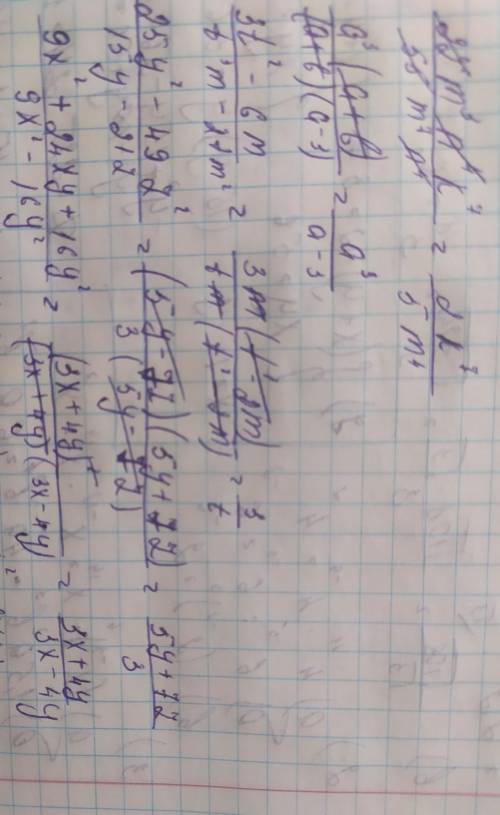 m³n⁴k⁷ / 55m⁷n⁴ = 2k⁷ / 5m⁴
a³(a+b) / (a+b)(a-3) = a³ / a-3
3t² - 6m / t³m - 2tm² = 3m(t² - 2m) / tm(t² - 2m) = 3 / t
25y² - 49z² / 15y - 21z = (5y - 7z)(5y + 7z) / 3(5y - 7z) = 5y + 7z / 3
9x² + 24xy + 16y² / 9x² - 16y² = (3x + 4y)² / (3x + 4y)(3x - 4y) = 3x + 4y / 3x - 4y